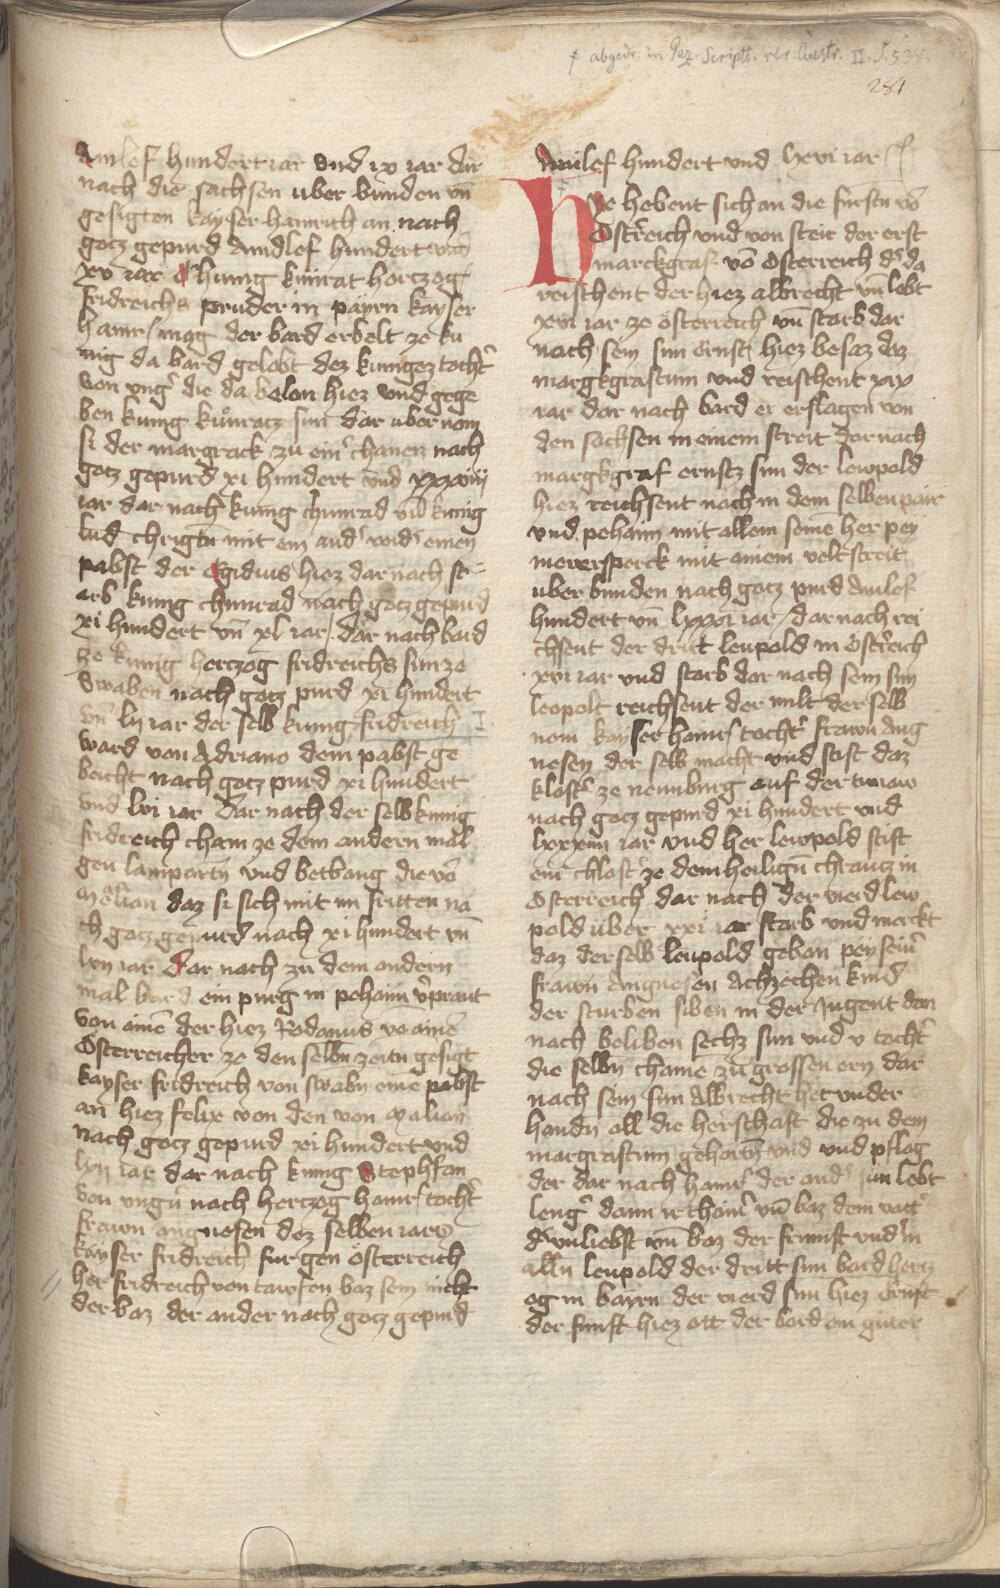 + abgedr. in Pez. Scriptt. rer. Austr. II. S. 534.
281
Aindlef hundert iar vnd xv iar dar
nach die sachsen uber bunden vn̄
gesigten kayser hainrich an nach
gotz gepurd Aindlef hundert vnd
xv iar Chunig kunrat hertzog
fridreichs pruder in payrn kayser
hainr mag der bard erbelt ze ku
nig da bard gelobt dez kunigez tocht̄
von vnḡ die da belon hiez vnd gege
ben kunig kunratz sun dar uber nom
si der margrack zu ein chauen nach
gotz gepurd xi hundert vnd xxxviij
iar dar nach kunig chunrad vn̄ kunig
lud chrigtn̄ mit ein and wid einen
pabst der Egidius hiez dar nach st
arb kunig chunrad nach gotz gepurd
xi hundert vn̄ xl iar dar nach bard
ze kunig hertzog fridreichs sun ze
Swaben nach gotz purd xi hundert
vn̄ lij iar der selb kunig fridreich
ward von Adriano dem pabst ge
beicht nach gotz purd xi hundert
vnd lvi iar Dar nach der selb kunig
fridreich cham ze dem andern mal
gen lampartn̄ vnd betbang die vō
Meilan daz si sich mit im fritten na
ch gotz gepurd nach xi hundert vn̄
lvij iar Dar nach zu dem andern
mal bard ein purg in pehaim v̄prant
von ainē der hiez Rodanus vō ainē
Österreicher ze den selbn̄ zeitn gesigt
kayser fridreich von swabn eine pabst
an hiez felix von den von Malian
nach gotz gepurd xi hundert vnd
lxij iar dar nach kunig Stephfan
von vngn̄ nach hertzog hainr tocht̄
frawn angnesen dez selben iars
kayser fridreich fur gen österreich
her fridreich von tawfen baz sein nicht
der baz der ander nach gotz gepurd
Aindlef hundert vnd lxvi iar
Hye hebent sich an die fursten vō
Osterreich vnd von steir der erst
marckgraf vō Osterreich d da
reischent der hiez albrecht vn̄ lebt
xvi iar ze österreich vn̄ starb dar
nach sein sun ernst hiez besaz daz
margkgraftum vnd reischent xix
iar dar nach bard er erslagen von
den sachsen in einem streit dar nach
margkgraf ernstz sun der lewpold
hiez reichsent nach in dem selben pair
vnd pehaim mit allem seine her pey
mewersperck mit ainem velt streit
uber bunden nach gotz purd Aindlef
hundert vn̄ lxxxi iar dar nach rei
chsent der dritt leupold in österreich
xvi iar vnd starb dar nach sein sun
leopolt reichsent der milt der selb
nom kayser hainr tocht̄ frawn Ang
nesen der selb macht vnd stift daz
klost̄ ze neunburg auf der tunaw
nach gotz gepurd xi hundert vnd
lxxxiiii iar vnd her lewpold stift
ein chlost̄ ze dem heilign̄ chrautz in
Osterreich dar nach der vierd lew
pold uber xxi iar starb vnd merckt
daz der selb leupold geban pey sein̄
frawn Angnesen Achzechen kind
der sturben siben in der Jugent dar
nach beliben sechz sun vnd v tocht̄
die selbn chame zu grossen ern dar
nach sein sun Albrecht het vnder
handn all die herschaft die zu dem
margraftum gehortn̄ vnd vnd pflag
der dar nach hainr der and sun lebt
leng̉ dann ir chain̄ vn̄ baz dem vatt̄
d vnliebst vn̄ baz der frunst vnd in
alln leupold der dritt sun bard hertz
og in bayrn der vierd sun hiez ernst
der funft hiez ott der bard ein guter